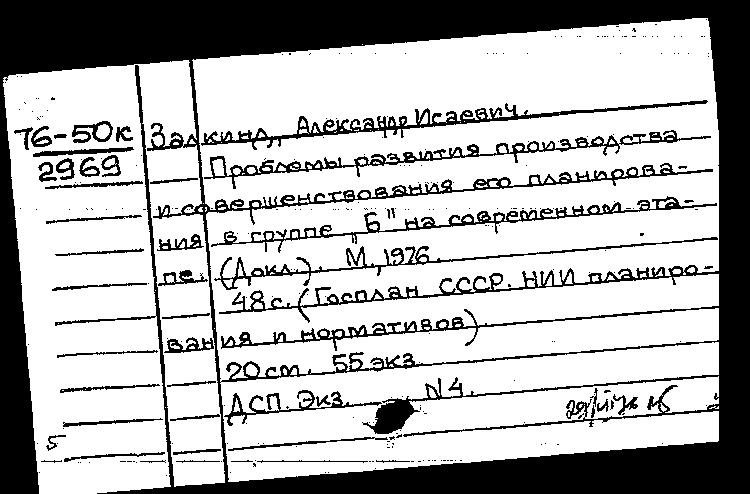 76-50к
2969
Залкинд, Александр Исаевич.
Проблемы развития производства
и совершенствования его планирова-
ния в группе „Б" на современном эта-
пе. (Докл.). М., 1976.
48 с. (Госплан СССР. НИИ планиро-
вания и нормативов)
20 см. 55 экз
ДСП. Экз. N 4.
5